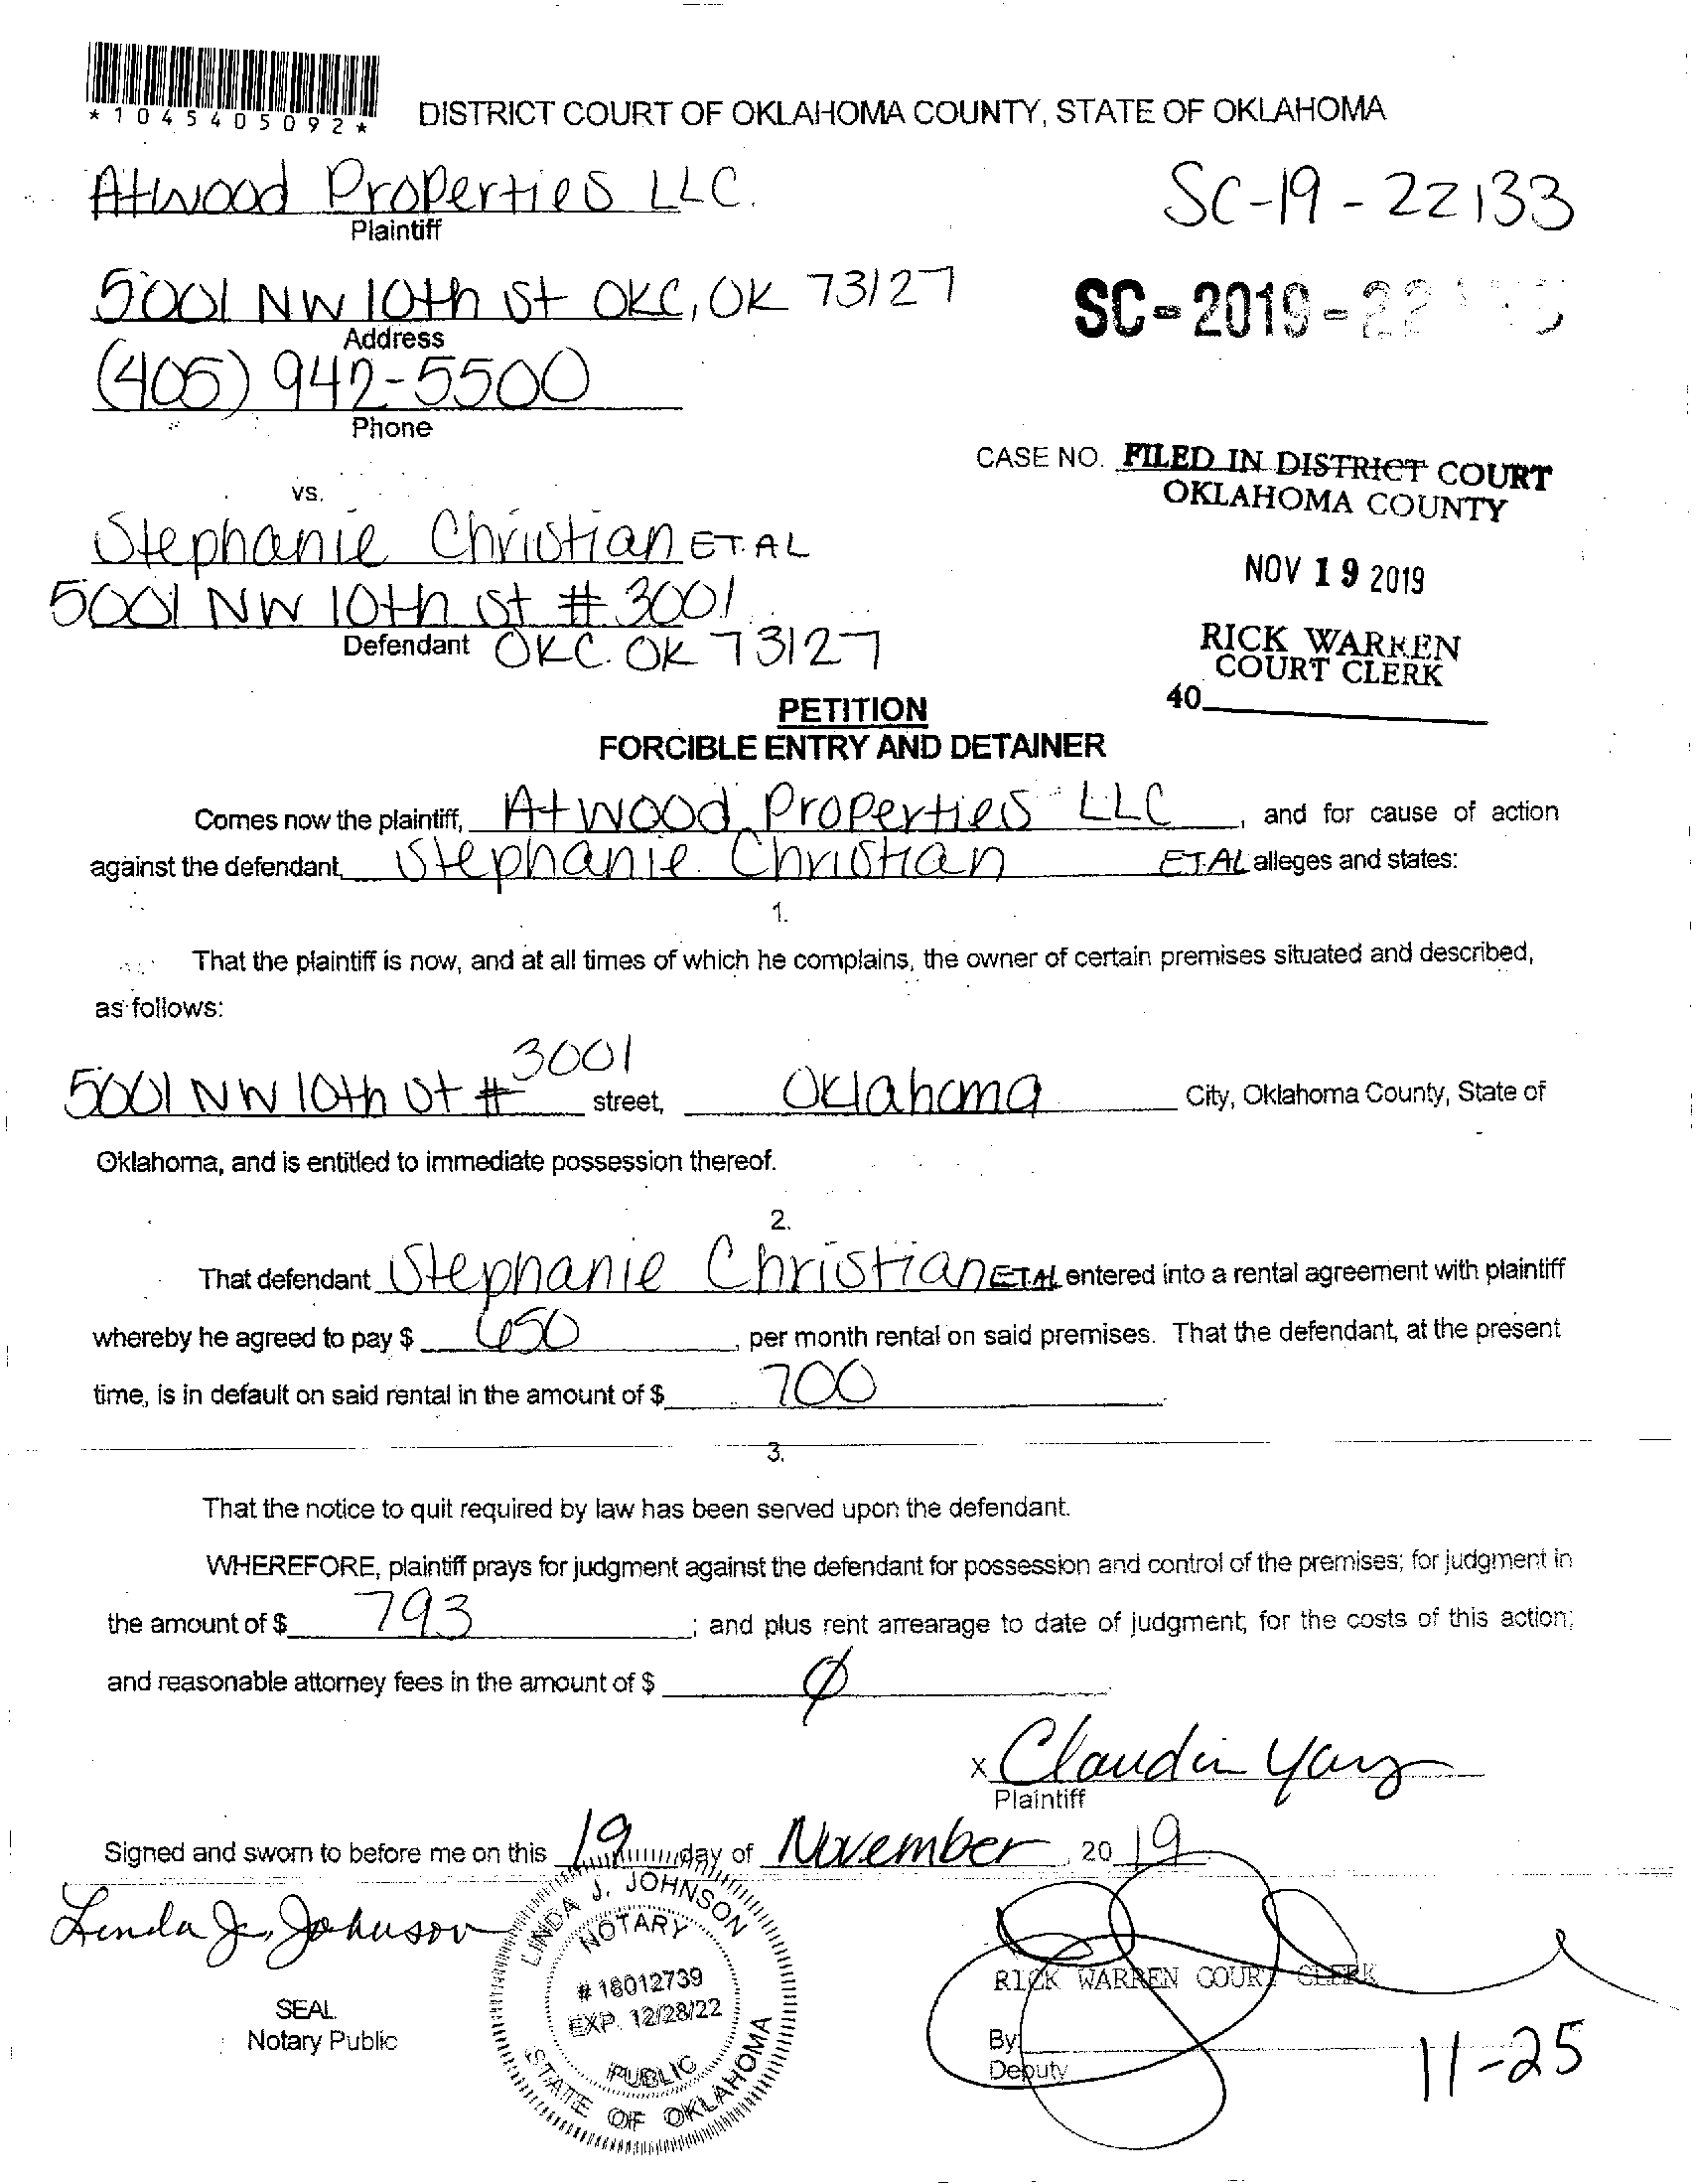 *1045405092*
DISTRICT COURT OF OKLAHOMA COUNTY, STATE OF OKLAHOMA
Atwood Properties LLC.
SC-19-22133
Plaintiff
5001 NW 10th St OKC, OK 73127
SC-2019-22
Address
(405) 942-5500
Phone
CASE NO. FILED IN DISTRICT COURT
OKLAHOMA COUNTY
vs.
Stephanie Christian ET. AL
NOV 19 2019
5001 NW 10th St # 3001
Defendant OKC. OK 73127
RICK WARREN
COURT CLERK
40
PETITION
FORCIBLE ENTRY AND DETAINER
Comes now the plaintiff, Atwood Properties LLC, and for cause of action
against the defendant, Stephanie Christian ET.AL alleges and states:
1.
That the plaintiff is now, and at all times of which he complains, the owner of certain premises situated and described,
as follows:
5001 NW 10th St # 3001 street, Oklahoma City, Oklahoma County, State of
Oklahoma, and is entitled to immediate possession thereof.
2.
That defendant Stephanie Christian ET.AL entered into a rental agreement with plaintiff
whereby he agreed to pay $ 650, per month rental on said premises. That the defendant, at the present
time, is in default on said rental in the amount of $ 700
3.
That the notice to quit required by law has been served upon the defendant.
WHEREFORE, plaintiff prays for judgment against the defendant for possession and control of the premises; for judgment in
the amount of $ 793; and plus rent arrearage to date of judgment; for the costs of this action;
and reasonable attorney fees in the amount of $ Ø
x Claudia
Plaintiff
Signed and sworn to before me on this 19 day of November, 2019
Linda J. Johnson
LINDA J. JOHNSON
NOTARY
# 18012739
EXP. 12/28/22
PUBLIC
STATE OF OKLAHOMA
SEAL
Notary Public
RICK WARREN COURT CLERK
By
Deputy
11-25